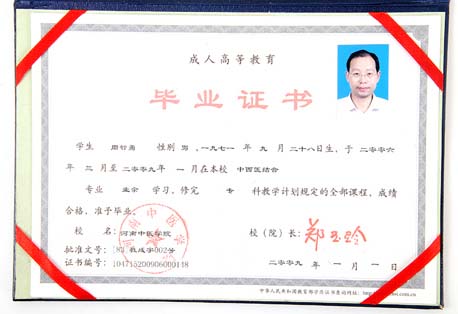 成人高等教育
毕业证书
学生 周智勇 性别 男,一九七一年 九 月 二十八日生,于 二〇〇六
年 三 月至 二〇〇九年 一 月在本校 中西医结合
专业 业余 学习,修完 专 科教学计划规定的全部课程,成绩
合格,准予毕业。
校 名: 河南中医学院
校(院)长: 郑玉玲
批准文号: 教成字002号
证书编号: 104715200906000118
二〇〇九 年 一 月 一 日
中华人民共和国教育部学历证书查询网址: